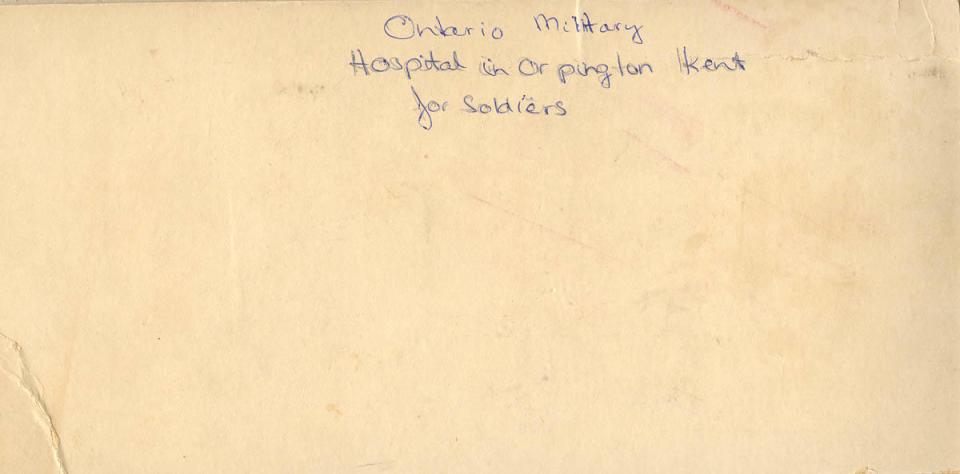 Ontario Military
Hospital in Orpington Kent
for Soldiers